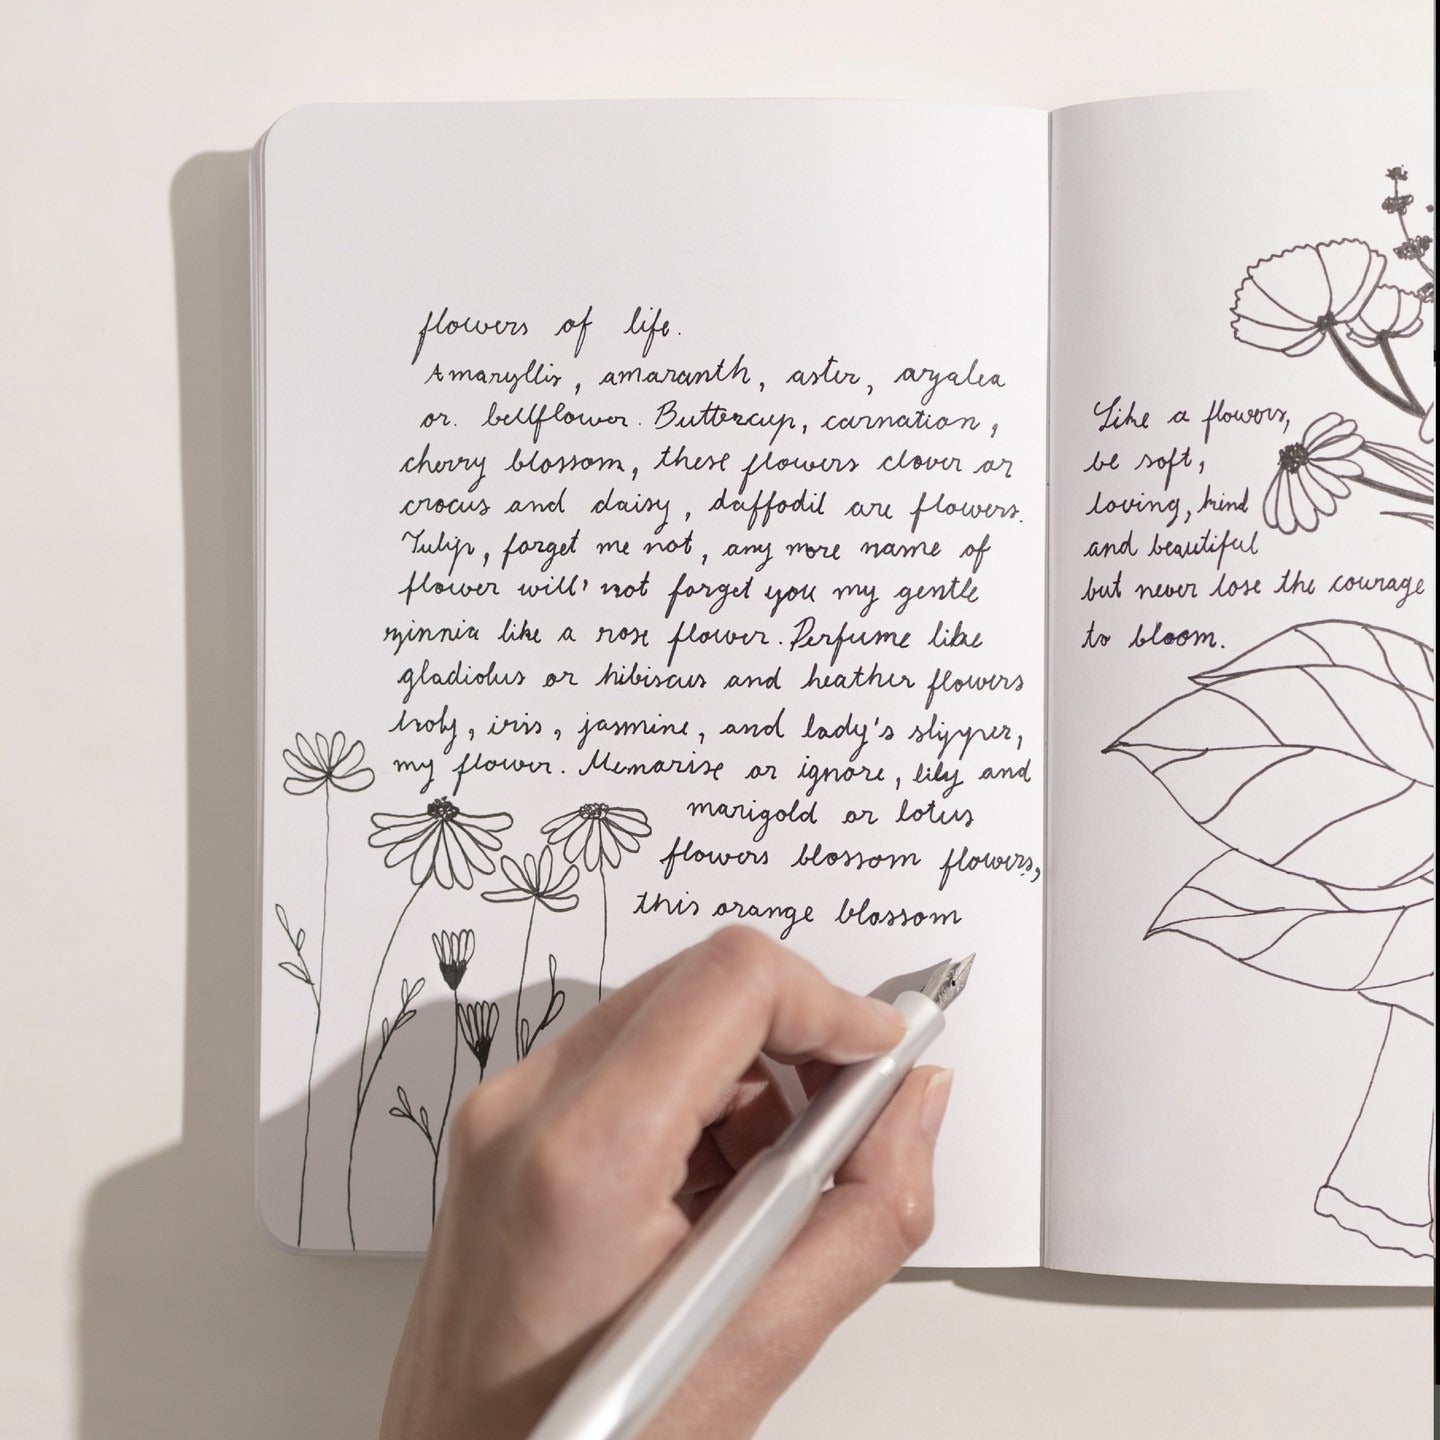 flowers of life.
Amaryllis, amaranth, aster, azalea
or. bellflower. Buttercup, carnation,
cherry blossom, these flowers clover or
crocus and daisy, daffodil are flowers.
Tulip, forget me not, any more name of
flower will' not forget you my gentle
zinnia like a rose flower. Perfume like
gladiolus or hibiscus and heather flowers
iris, jasmine, and lady's slipper,
my flower. Memorise or ignore, lily and
marigold or lotus
flowers blossom flowers,
this orange blossom
Like a flowers,
be soft,
loving, kind
and beautiful
but never lose the courage
to bloom.